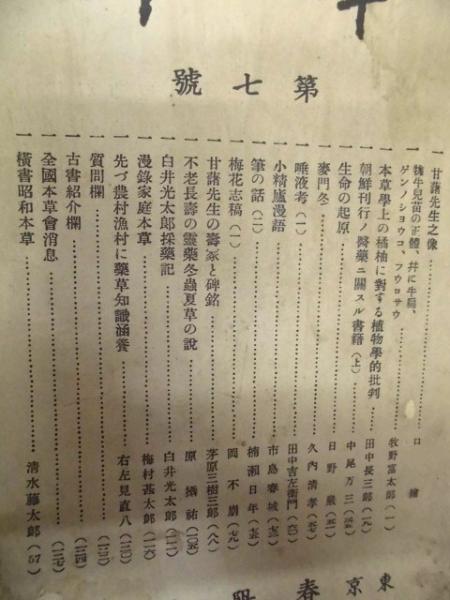 第七號
一 甘藷先生之像……口繪
一 牽牛兒苗の正體、幷に牛扁、ゲンノショウコ、フウロサウ……牧野富太郎(一)
一 本草學上の橘柚に對する植物學的批判……田中長三郎(一九)
一 朝鮮刊行ノ醫藥ニ關スル書籍(上)……中尾万三
一 生命の起原……日野巖
一 麥門冬……久内清孝
一 唾液考(一)……田中吉左衞門
一 小精廬漫語……市島春城
一 筆の話(二)……楠瀬日年
一 梅花志稿(一)……岡不崩(七九)
一 甘藷先生の壽冢と碑銘……茅原三樹三郎(八八)
一 不老長壽の靈藥冬蟲夏草の說……原攝祐(一〇五)
一 白井光太郎採藥記……白井光太郎
一 漫錄家庭本草……梅村甚太郎
一 先づ農村漁村に藥草知識涵養……右左見直八
一 質問欄
一 古書紹介欄
一 全國本草會消息
一 橫書昭和本草……清水藤太郎(57)
東京 春